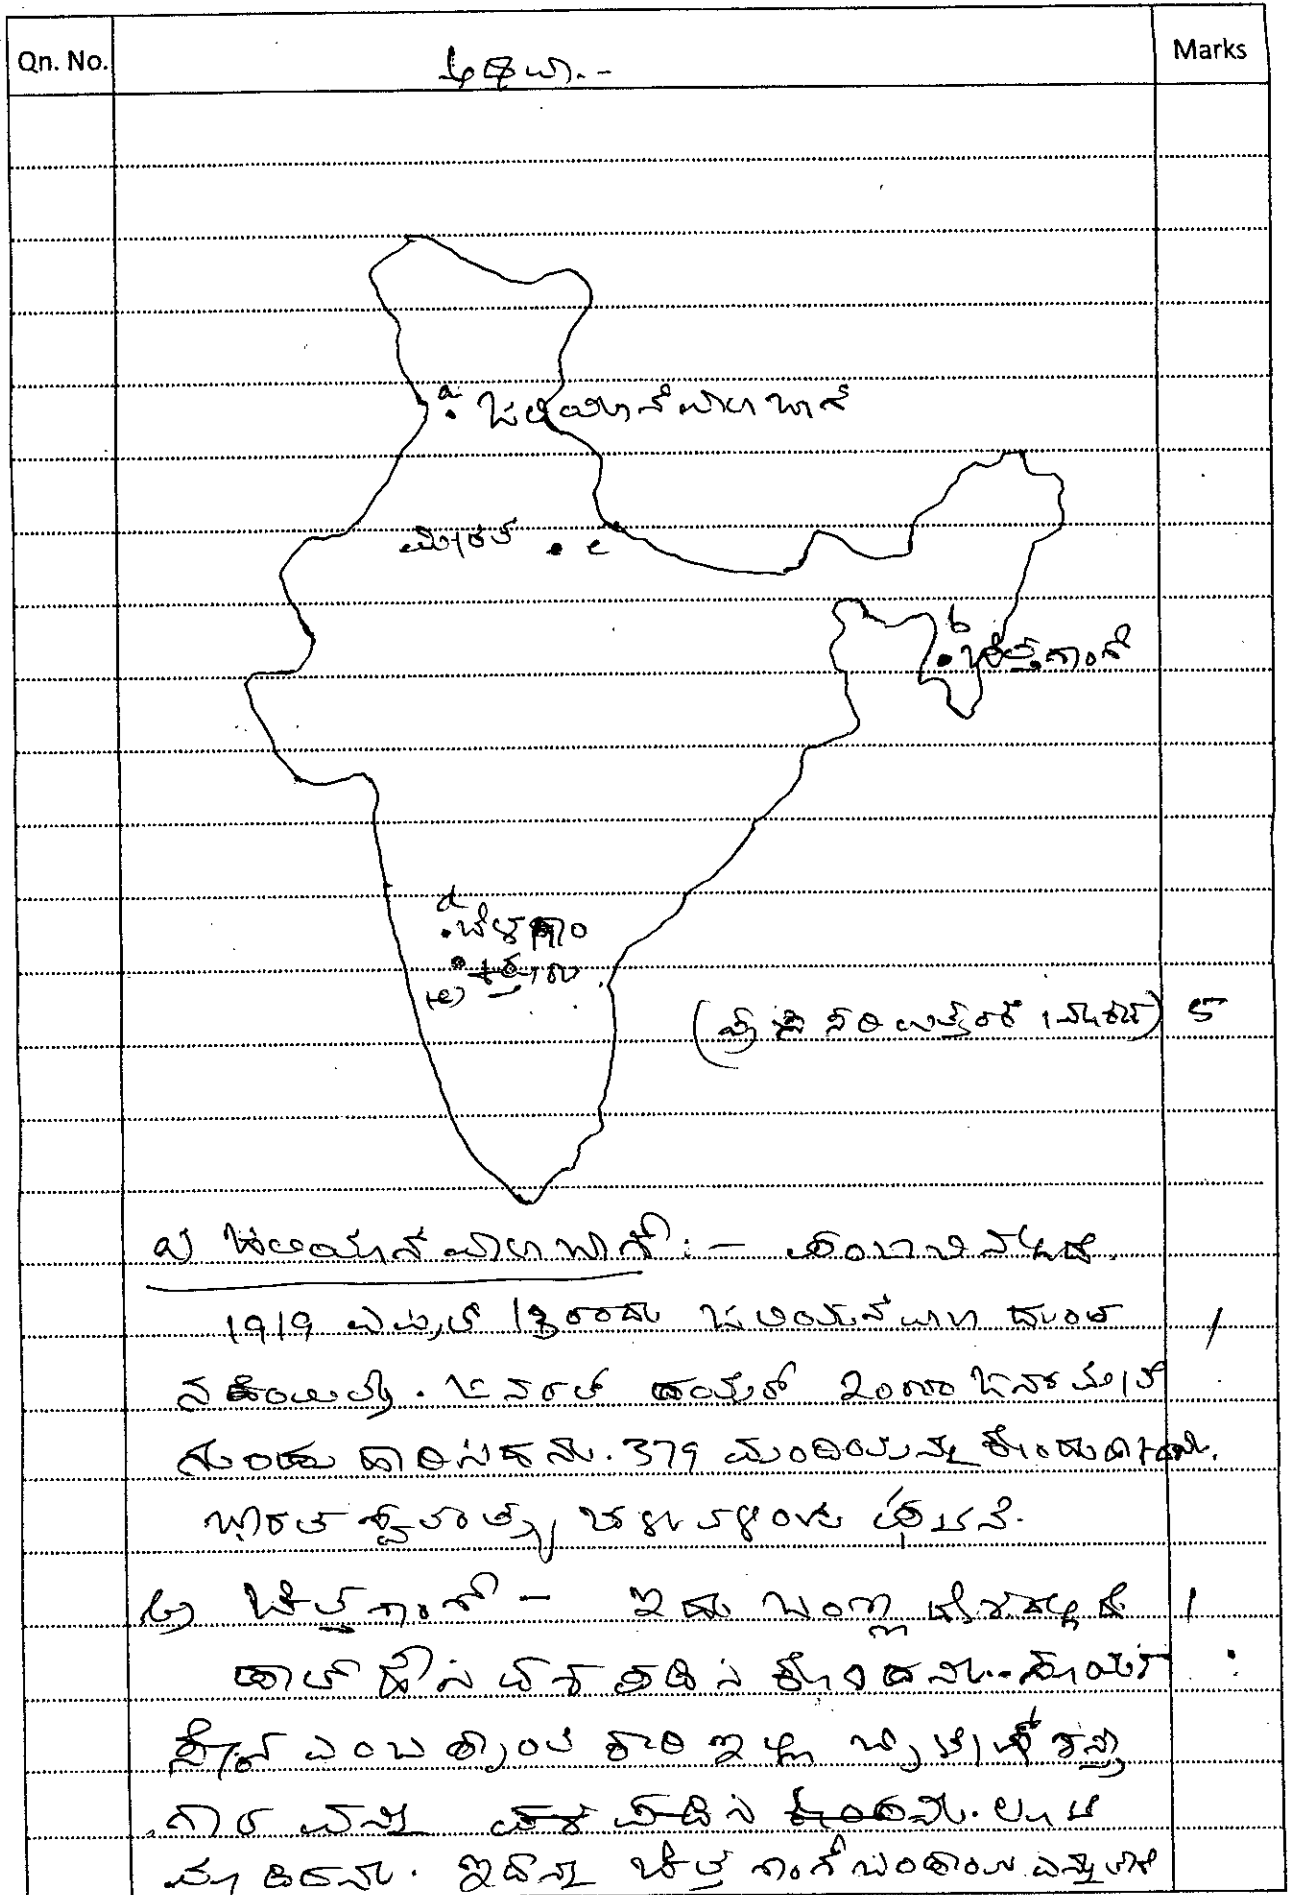 Qn. No.
Marks
a
ಜಲಿಯಾನ್ ವಾಲಾ ಬಾಗ್
ಮೀರತ್ c
b
ಚಿತ್ತಗಾಂಗ್
d
ಬೆಳಗಾಂ
(e)
(ಪ್ರತಿ ಸರಿ ಉತ್ತರಕ್ಕೆ 1 ಅಂಕ) 5
a) ಜಲಿಯಾನ್ ವಾಲಾಬಾಗ್ :- ಪಂಜಾಬಿನಲ್ಲಿದೆ.
1919 ಎಪ್ರಿಲ್ 13ರಂದು ಜಲಿಯನ್ ವಾಲಾ ದುರಂತ 1
ನಡೆಯಿತು. ಜನರಲ್ ಡಯರ್ 20000 ಜನರ ಮೇಲೆ
ಗುಂಡು ಹಾರಿಸಿದನು. 379 ಮಂದಿಯನ್ನು ಕೊಂದು ಹಾಕಿದನು.
ಭಾರತ ಸ್ವಾತಂತ್ರ್ಯ ಚಳುವಳಿಯ ಘಟನೆ.
b) ಚಿತ್ತಗಾಂಗ್ - ಇದು ಬಂಗ್ಲಾ ದೇಶದಲ್ಲಿದೆ 1
ಎಂಬ ಕ್ರಾಂತಿಕಾರಿ ಇಲ್ಲಿ ಬ್ರಿಟಿಷ್ ಶಸ್ತ್ರಾ
ಗಾರವನ್ನು ಲೂಟಿ
ಮಾಡಿದನು. ಇದನ್ನು ಚಿತ್ತಗಾಂಗ್ ಬಂಡಾಯ ಎನ್ನುವರು